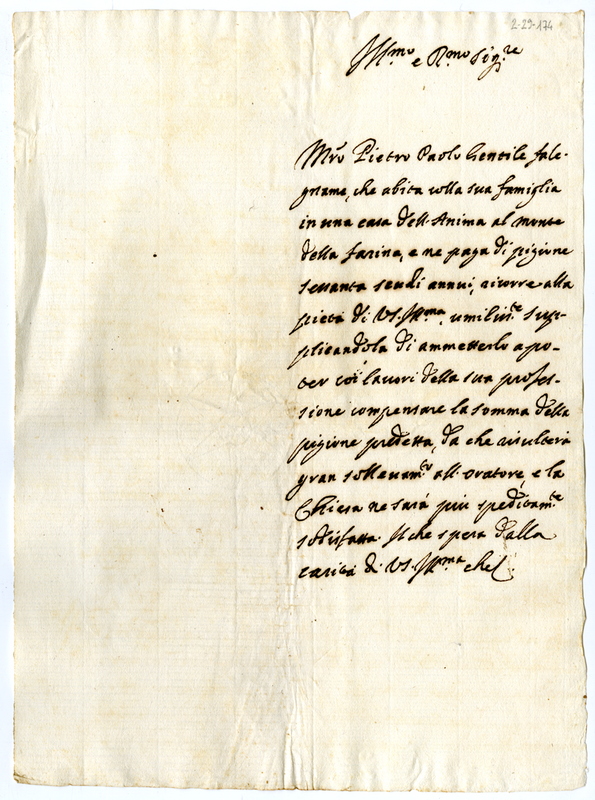 2-29-174
Ill.mo e R.mo Sig.re
Mro Pietro Paolo Gentile fale-
gname, che abita colla sua famiglia
in una casa dell'Anima al monte
della farina, e ne paga di pigione
sessanta scudi annui, ricorre alla
pietà di VS. Ill.ma, umilm.te sup-
plicandola di ammetterlo a po-
ter coi lavori della sua profes-
sione compensare la somma della
pigione predetta, da che risulterà
gran sollevam.to all'oratore, e la
Chiesa ne sarà più speditam.te
sodisfatta. Il che spera dalla
carità di VS. Ill.ma che